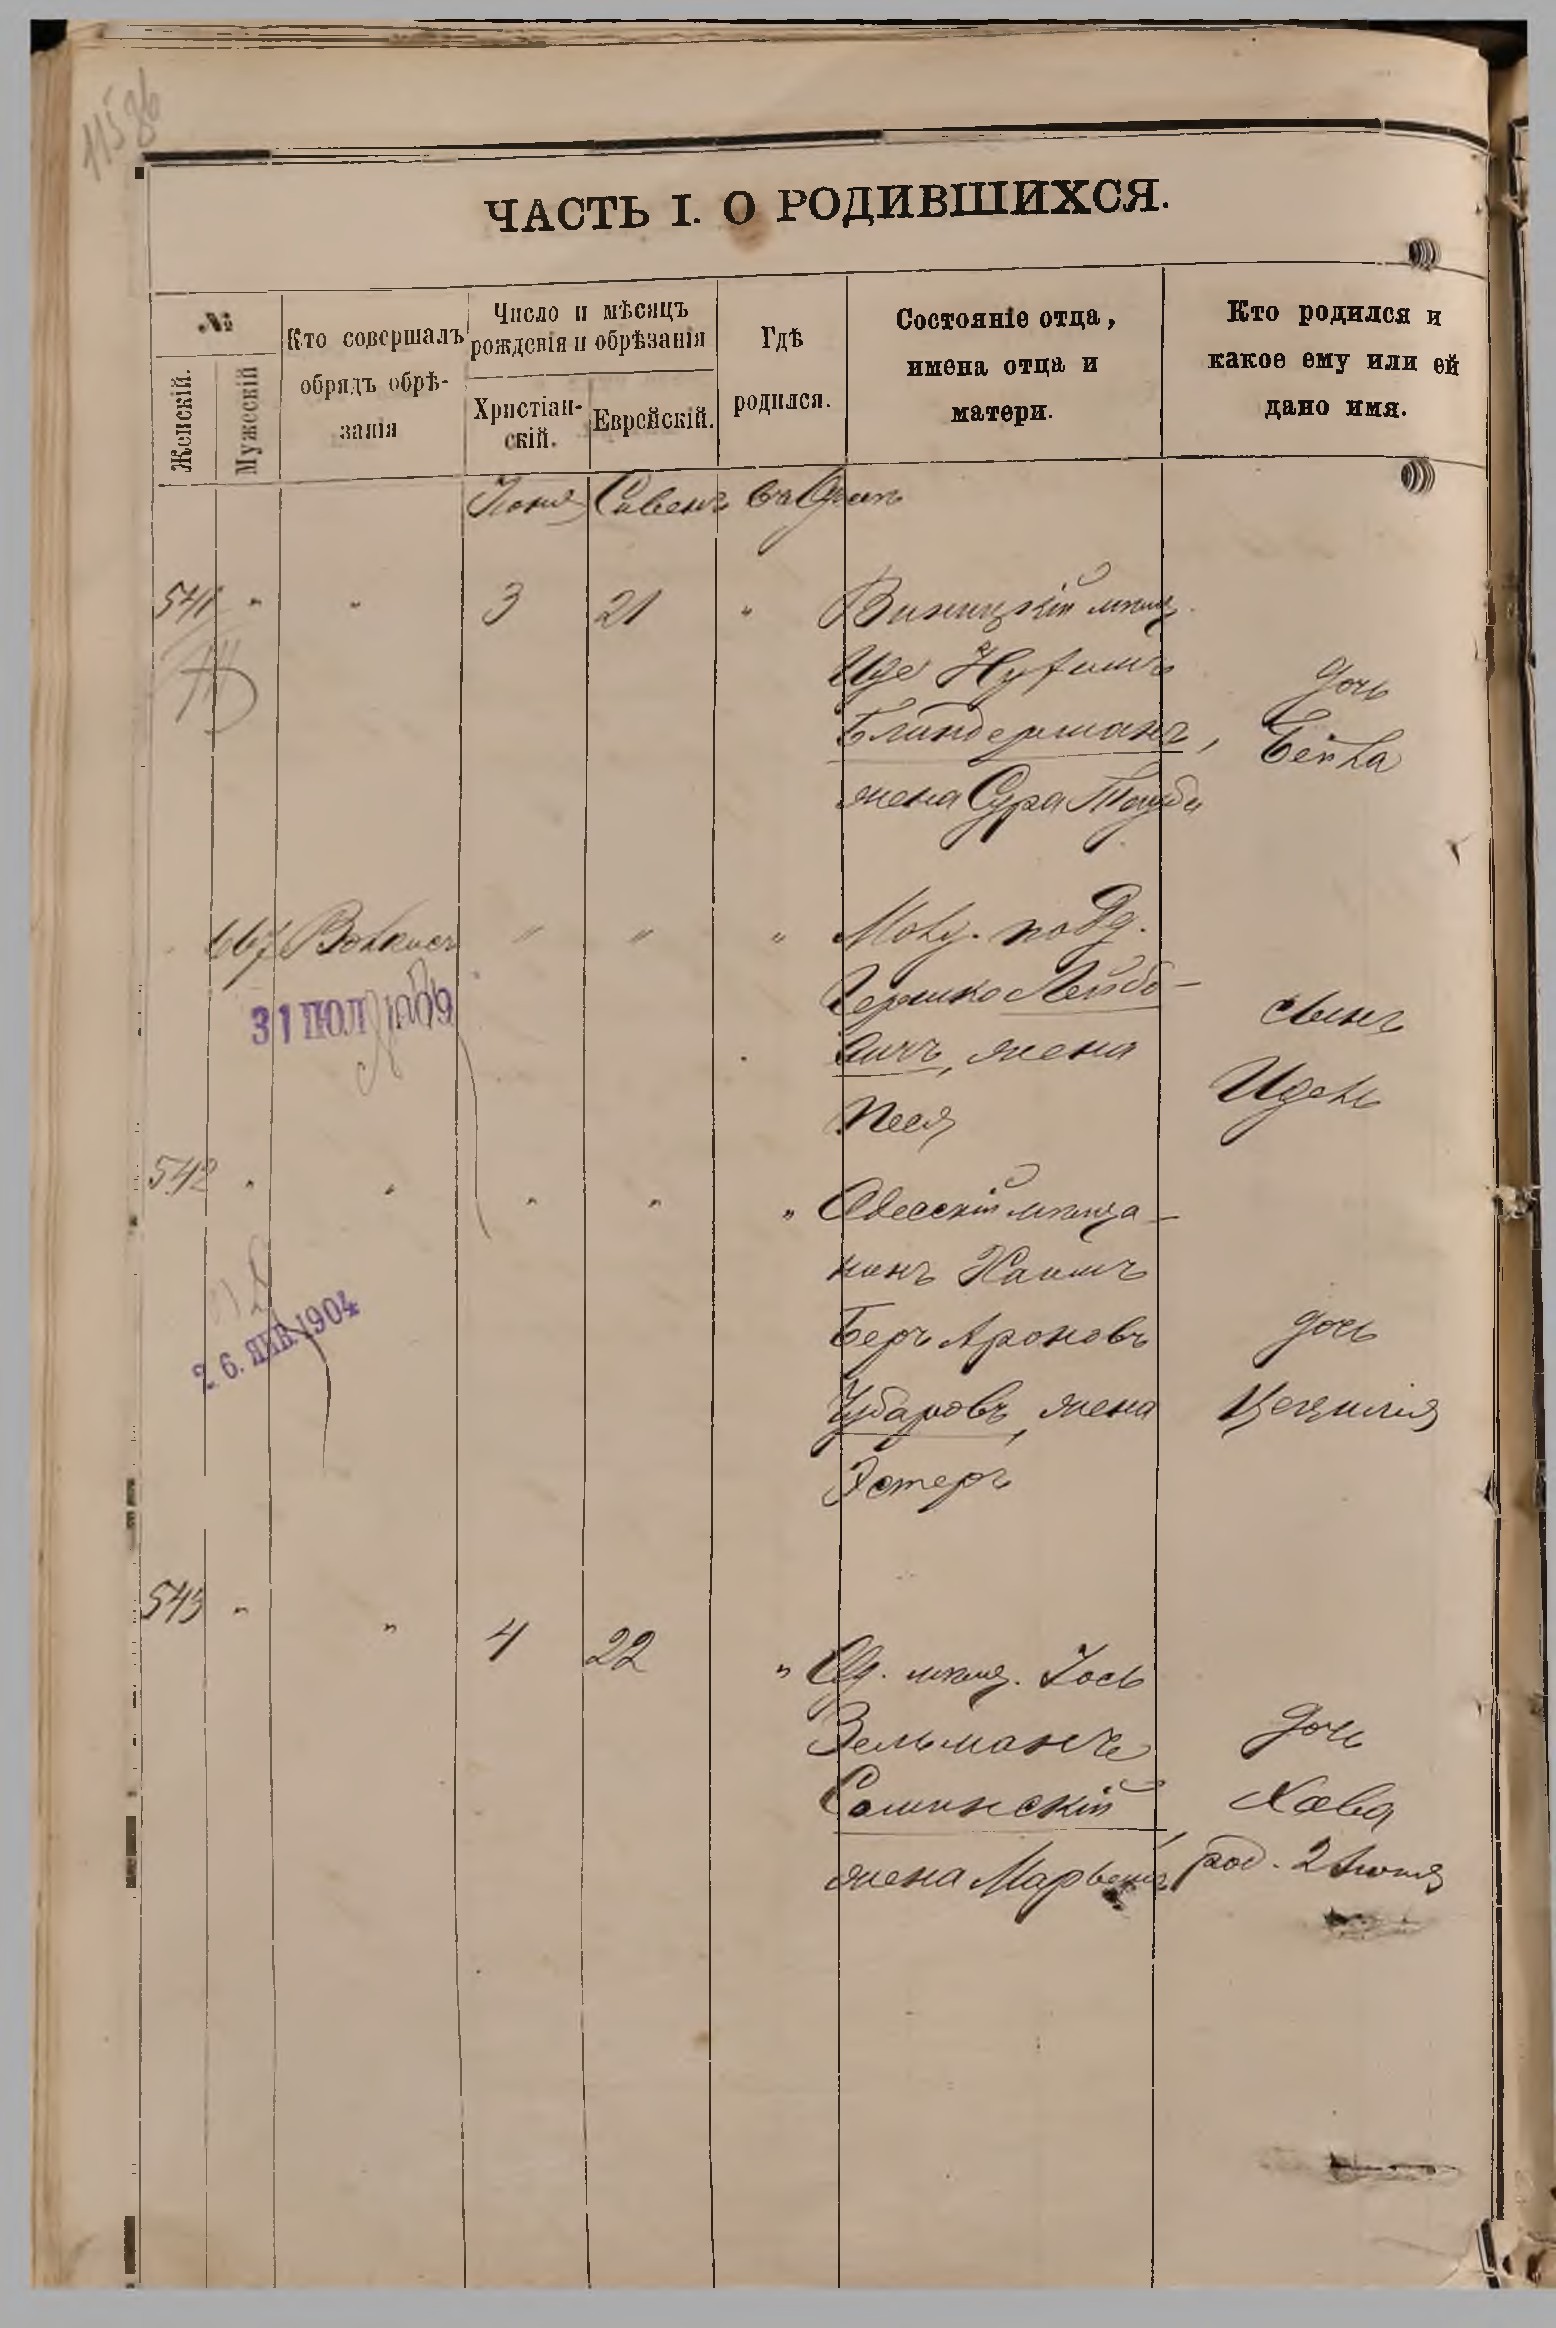 1158б
ЧАСТЬ I. О РОДИВШИХСЯ.
№
Женскій.
Мужескій
Кто совершалъ
обрядъ обрѣ-
занія
Число и мѣсяцъ
рожденія и обрѣзанія
Христіан-
скій.
Еврейскій.
Гдѣ
родился.
Состояніе отца,
имена отца и
матери.
Кто родился и
какое ему или ей
дано имя.
Іюня Сивенъ въ Одессѣ
541 " " 3 21 " Виницкій мѣщ.
Иде Нухимъ
Блиндерманъ,
жена Сура Тауба
дочь
Бейла
667 Волкисъ " " " Мог. под
Гершко Лейбо-
вичъ, жена
Песя
сынъ
Идель
31 ІЮЛ 1909
542 " " " " " Одесскій мѣща-
нинъ Хаимъ
Беръ Ароновъ
Чубаровъ, жена
Эстеръ
дочь
Цецилія
26. ЯНВ. 1904
543 " " 4 22 " Од. мѣщ. Іось
Зельмановъ
Соминскій,
жена Марьемъ
дочь
Хава
род. 2 Іюня